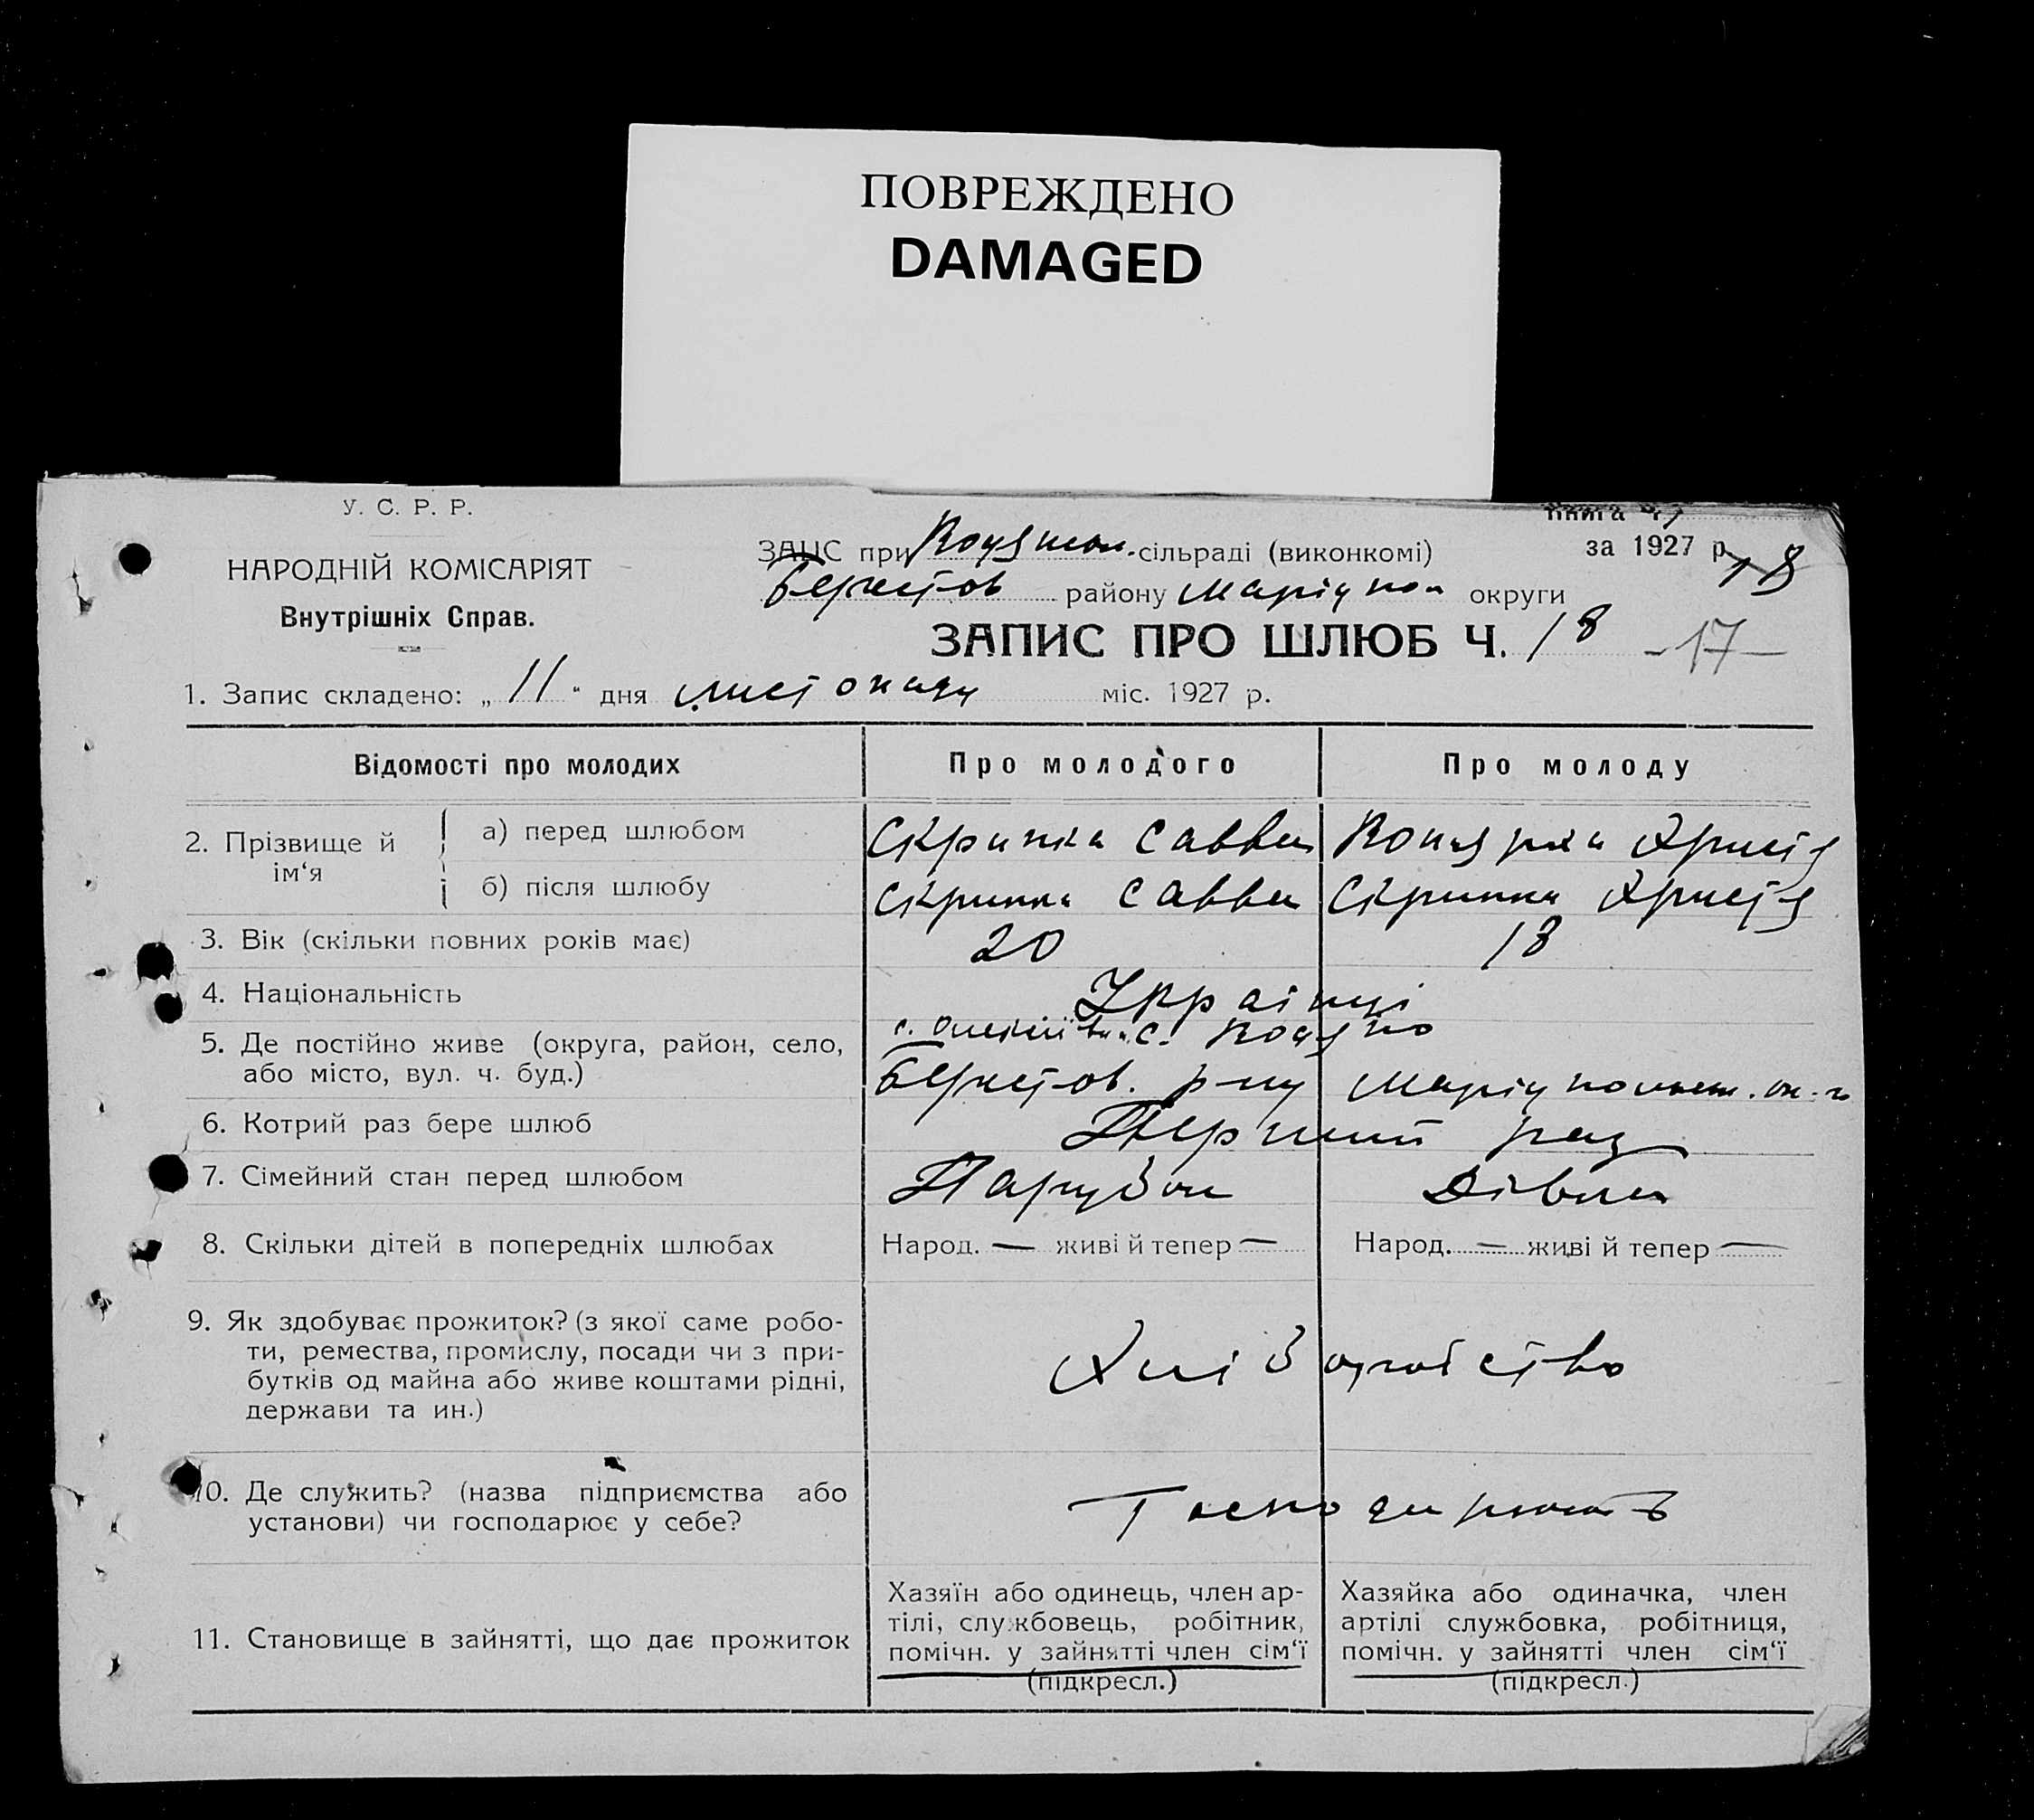 ПОВРЕЖДЕНО
DAMAGED
У. С. Р. Р.
НАРОДНІЙ КОМІСАРІЯТ
Внутрішніх Справ.
Книга Ч.
за 1927 р.
18
ЗАГС при сільраді (виконкомі)
Берестов району Маріупол округи
ЗАПИС ПРО ШЛЮБ Ч. 18 -17-
1. Запис складено: „11“ дня листопаду міс. 1927 р.
Відомості про молодих Про молодого Про молоду
2. Прізвище й ім‘я
а) перед шлюбом Скрипка Савва Христя
б) після шлюбу Скрипка Савва Скрипка Христя
3. Вік (скільки повних років має) 20 18
4. Національність Українці
5. Де постійно живе (округа, район, село, с. с.
або місто, вул. ч. буд.) Берестов. р-ну Маріупольськ. ок-г
6. Котрий раз бере шлюб Перший раз
7. Сімейний стан перед шлюбом Парубок Дівка
8. Скільки дітей в попередніх шлюбах Народ. — живі й тепер — Народ. — живі й тепер —
9. Як здобуває прожиток? (з якої саме робо-
ти, ремества, промислу, посади чи з при-
бутків од майна або живе коштами рідні,
держави та ин.)
Хліборобство
10. Де служить? (назва підприємства або
установи) чи господарює у себе?
Господарюють
11. Становище в зайнятті, що дає прожиток
Хазяїн або одинець, член ар-
тілі, службовець, робітник,
помічн. у зайнятті член сім‘ї
(підкресл.)
Хазяйка або одиначка, член
артілі службовка, робітниця,
помічн. у зайнятті член сім‘ї
(підкресл.)